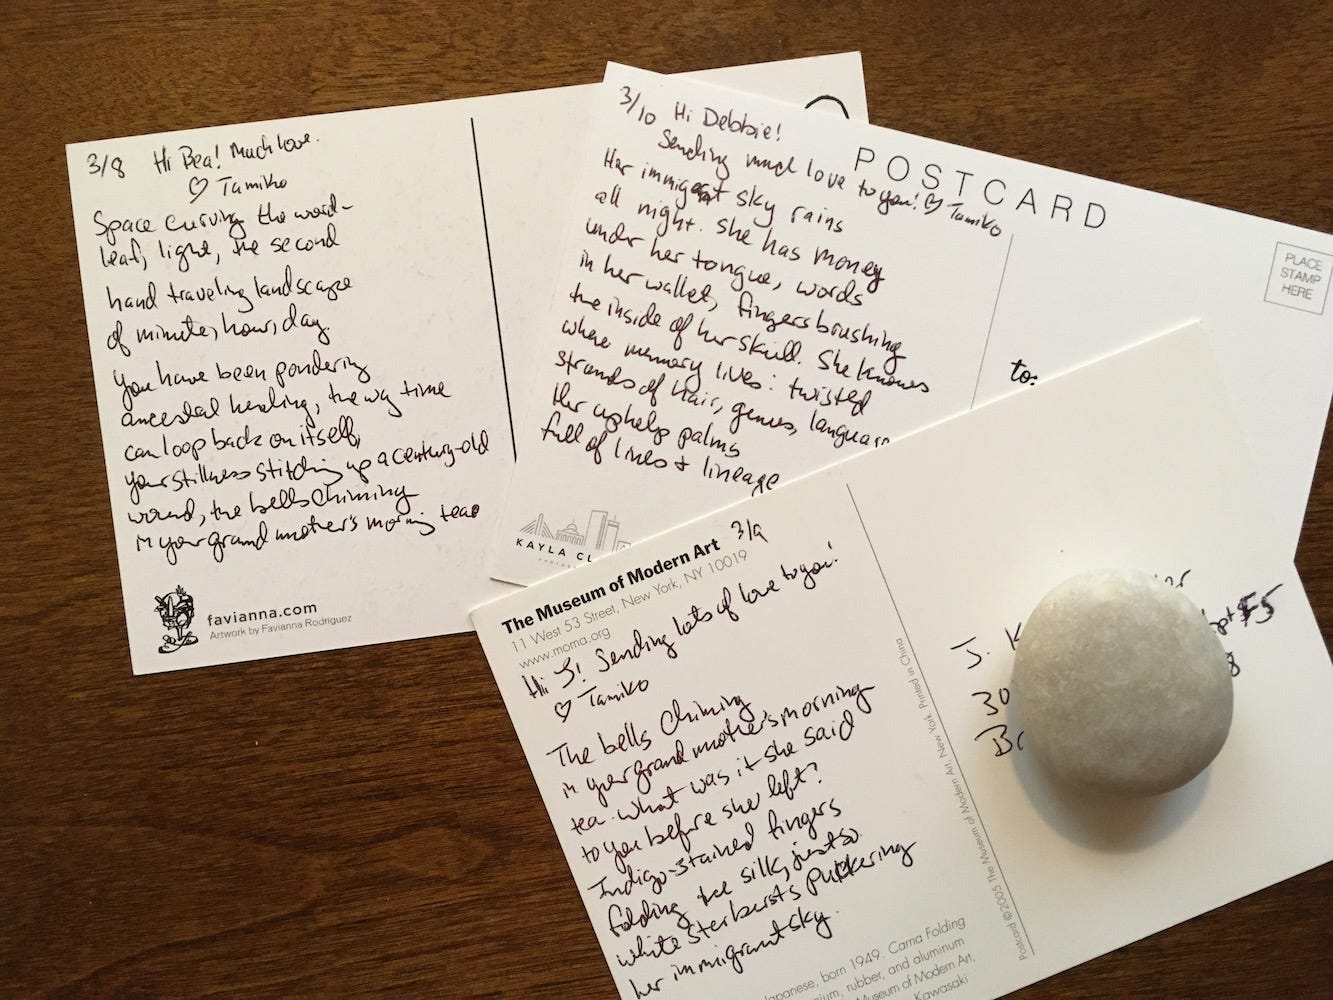 3/8 Hi Bea! Much love.
♡ Tamiko
Space curving the word-
leaf, light, the second
hand traveling landscapes
of minute, hour, day.
You have been pondering
ancestral healing, the way time
can loop back on itself,
your stillness stitching up a century-old
wound, the bells chiming
in your grandmother's morning tea
favianna.com
Artwork by Favianna Rodriguez
3/10 Hi Debbie!
Sending much love to you! ♡ Tamiko
Her immigrant sky rains
all night. She has money
under her tongue, words
in her wallet, fingers brushing
the inside of her skull. She knows
where memory lives: twisted
strands of hair, genes, language
Her upheld palms
full of lines & lineage
KAYLA CL
POSTCARD
PLACE
STAMP
HERE
to:
The Museum of Modern Art 3/9
11 West 53 Street, New York, NY 10019
www.moma.org
Hi J! Sending lots of love to you!
♡ Tamiko
The bells chiming
in your grandmother's morning
tea. What was it she said
to you before she left?
Indigo-stained fingers
folding the silk, just so
white starbursts puckering
her immigrant sky.
Japanese, born 1949. Carna Folding
rubber, and aluminum
Museum of Modern Art,
Kawasaki
Postcard © 2005 The Museum of Modern Art, New York. Printed in China
J. K
30
Br